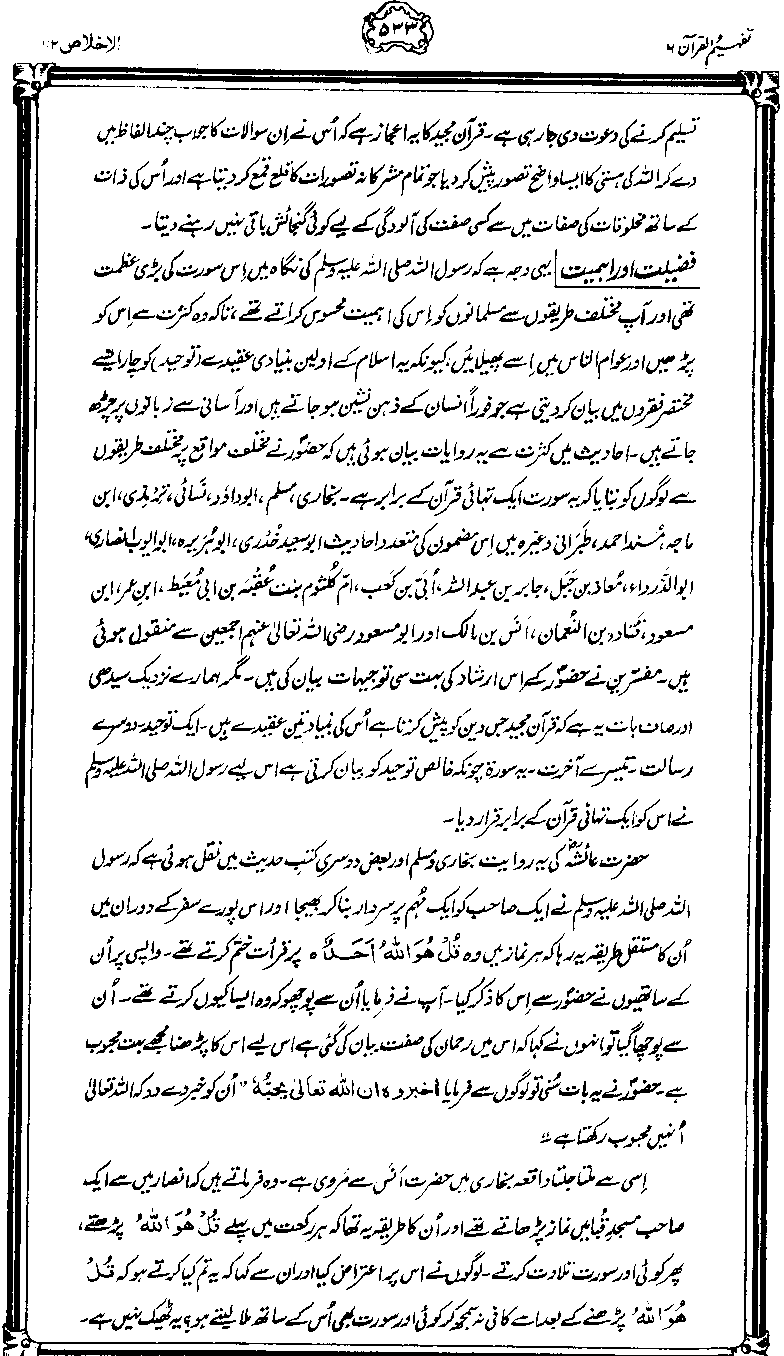 تفہیم القرآن ۶
۵۳۳
الاخلاص ۱۱۲
تسلیم کرنے کی دعوت دی جا رہی ہے۔ قرآن مجید کا یہ اعجاز ہے کہ اُس نے اِن سوالات کا جواب چند الفاظ میں
دے کر اللہ کی ہستی کا ایسا واضح تصور پیش کر دیا جو تمام مشرکانہ تصورات کا قلع قمع کر دیتا ہے اور اُس کی ذات
کے ساتھ مخلوقات کی صفات میں سے کسی صفت کی آلودگی کے لیے کوئی گنجائش باقی نہیں رہنے دیتا۔
فضیلت اور اہمیت یہی وجہ ہے کہ رسول اللہ صلی اللہ علیہ وسلم کی نگاہ میں اِس سورت کی بڑی عظمت
تھی اور آپ مختلف طریقوں سے مسلمانوں کو اِس کی اہمیت محسوس کراتے تھے، تاکہ وہ کثرت سے اِس کو
پڑھیں اور عوام الناس میں اِسے پھیلائیں، کیونکہ یہ اسلام کے اولین بنیادی عقیدے (توحید) کو چار ایسے
مختصر فقروں میں بیان کر دیتی ہے جو فوراً انسان کے ذہن نشین ہو جاتے ہیں اور آسانی سے زبانوں پر چڑھ
جاتے ہیں۔ احادیث میں کثرت سے یہ روایات بیان ہوئی ہیں کہ حضورؐ نے مختلف مواقع پر مختلف طریقوں
سے لوگوں کو بتایا کہ یہ سورت ایک تہائی قرآن کے برابر ہے۔ بخاری، مسلم، ابوداؤد، نسائی، ترمذی، ابن
ماجہ، مُسند احمد، طَبَرانی وغیرہ میں اِس مضمون کی متعدد احادیث ابو سعید خُدری، ابوہُریرہ، ابو ایوب انصاری،
ابوالدَّرداء، مُعاذ بن جَبَل، جابر بن عبد اللہ، اُبیّ بن کَعب، اُمّ کُلثوم بنت عُقْبَہ بن ابی مُعَیط، ابن عمر، ابن
مسعود، قتادہ بن النُّعمان، اَنَس بن مالک اور ابو مسعود رضی اللہ تعالیٰ عنہم اجمعین سے منقول ہوئی
ہیں۔ مفسّرین نے حضورؐ کے اس ارشاد کی بہت سی توجیہات بیان کی ہیں۔ مگر ہمارے نزدیک سیدھی
اور صاف بات یہ ہے کہ قرآن مجید جس دین کو پیش کرتا ہے اُس کی بنیاد تین عقیدے ہیں۔ ایک توحید۔ دوسرے
رسالت۔ تیسرے آخرت۔ یہ سورۃ چونکہ خالص توحید کو بیان کرتی ہے اس لیے رسول اللہ صلی اللہ علیہ وسلم
نے اس کو ایک تہائی قرآن کے برابر قرار دیا۔
حضرت عائشہؓ کی یہ روایت بخاری و مسلم اور بعض دوسری کتبِ حدیث میں نقل ہوئی ہے کہ رسول
اللہ صلی اللہ علیہ وسلم نے ایک صاحب کو ایک مُہم پر سردار بنا کر بھیجا اور اس پورے سفر کے دوران میں
اُن کا مستقل طریقہ یہ رہا کہ ہر نماز میں وہ قُلْ هُوَ اللّٰهُ اَحَدٌ ہ پر قرأت ختم کرتے تھے۔ واپسی پر اُن
کے ساتھیوں نے حضورؐ سے اِس کا ذکر کیا۔ آپ نے فرمایا اُن سے پوچھو کہ وہ ایسا کیوں کرتے تھے۔ اُن
سے پوچھا گیا تو انہوں نے کہا کہ اس میں رحمان کی صفت بیان کی گئی ہے اس لیے اس کا پڑھنا مجھے بہت محبوب
ہے۔ حضورؐ نے یہ بات سُنی تو لوگوں سے فرمایا اخبروہ ان الله تعالیٰ یحبّه "اُن کو خبر دے دو کہ اللہ تعالیٰ
اُنہیں محبوب رکھتا ہے"۔
اِسی سے ملتا جلتا واقعہ بخاری میں حضرت اَنَس سے مَروی ہے۔ وہ فرماتے ہیں کہ انصار میں سے ایک
صاحب مسجدِ قُبا میں نماز پڑھاتے تھے اور اُن کا طریقہ یہ تھا کہ ہر رکعت میں پہلے قُلْ هُوَ اللّٰهُ پڑھتے،
پھر کوئی اور سورت تلاوت کرتے۔ لوگوں نے اس پر اعتراض کیا اور ان سے کہا کہ یہ تم کیا کرتے ہو کہ قُلْ
هُوَ اللّٰهُ پڑھنے کے بعد اسے کافی نہ سمجھ کر کوئی اور سورت بھی اُس کے ساتھ ملا لیتے ہو؟ یہ ٹھیک نہیں ہے۔